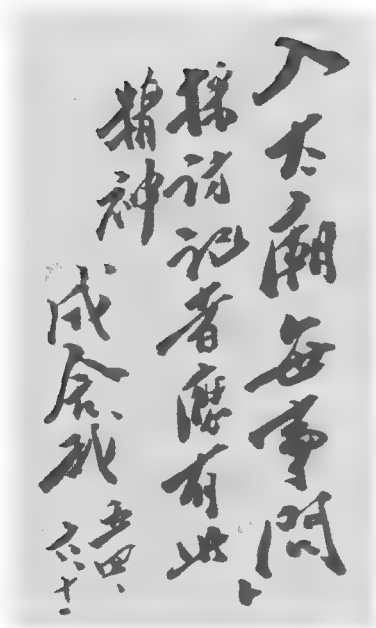 入太廟每事問，
採訪記者應有此
精神
成舍我
五四、
六、十一